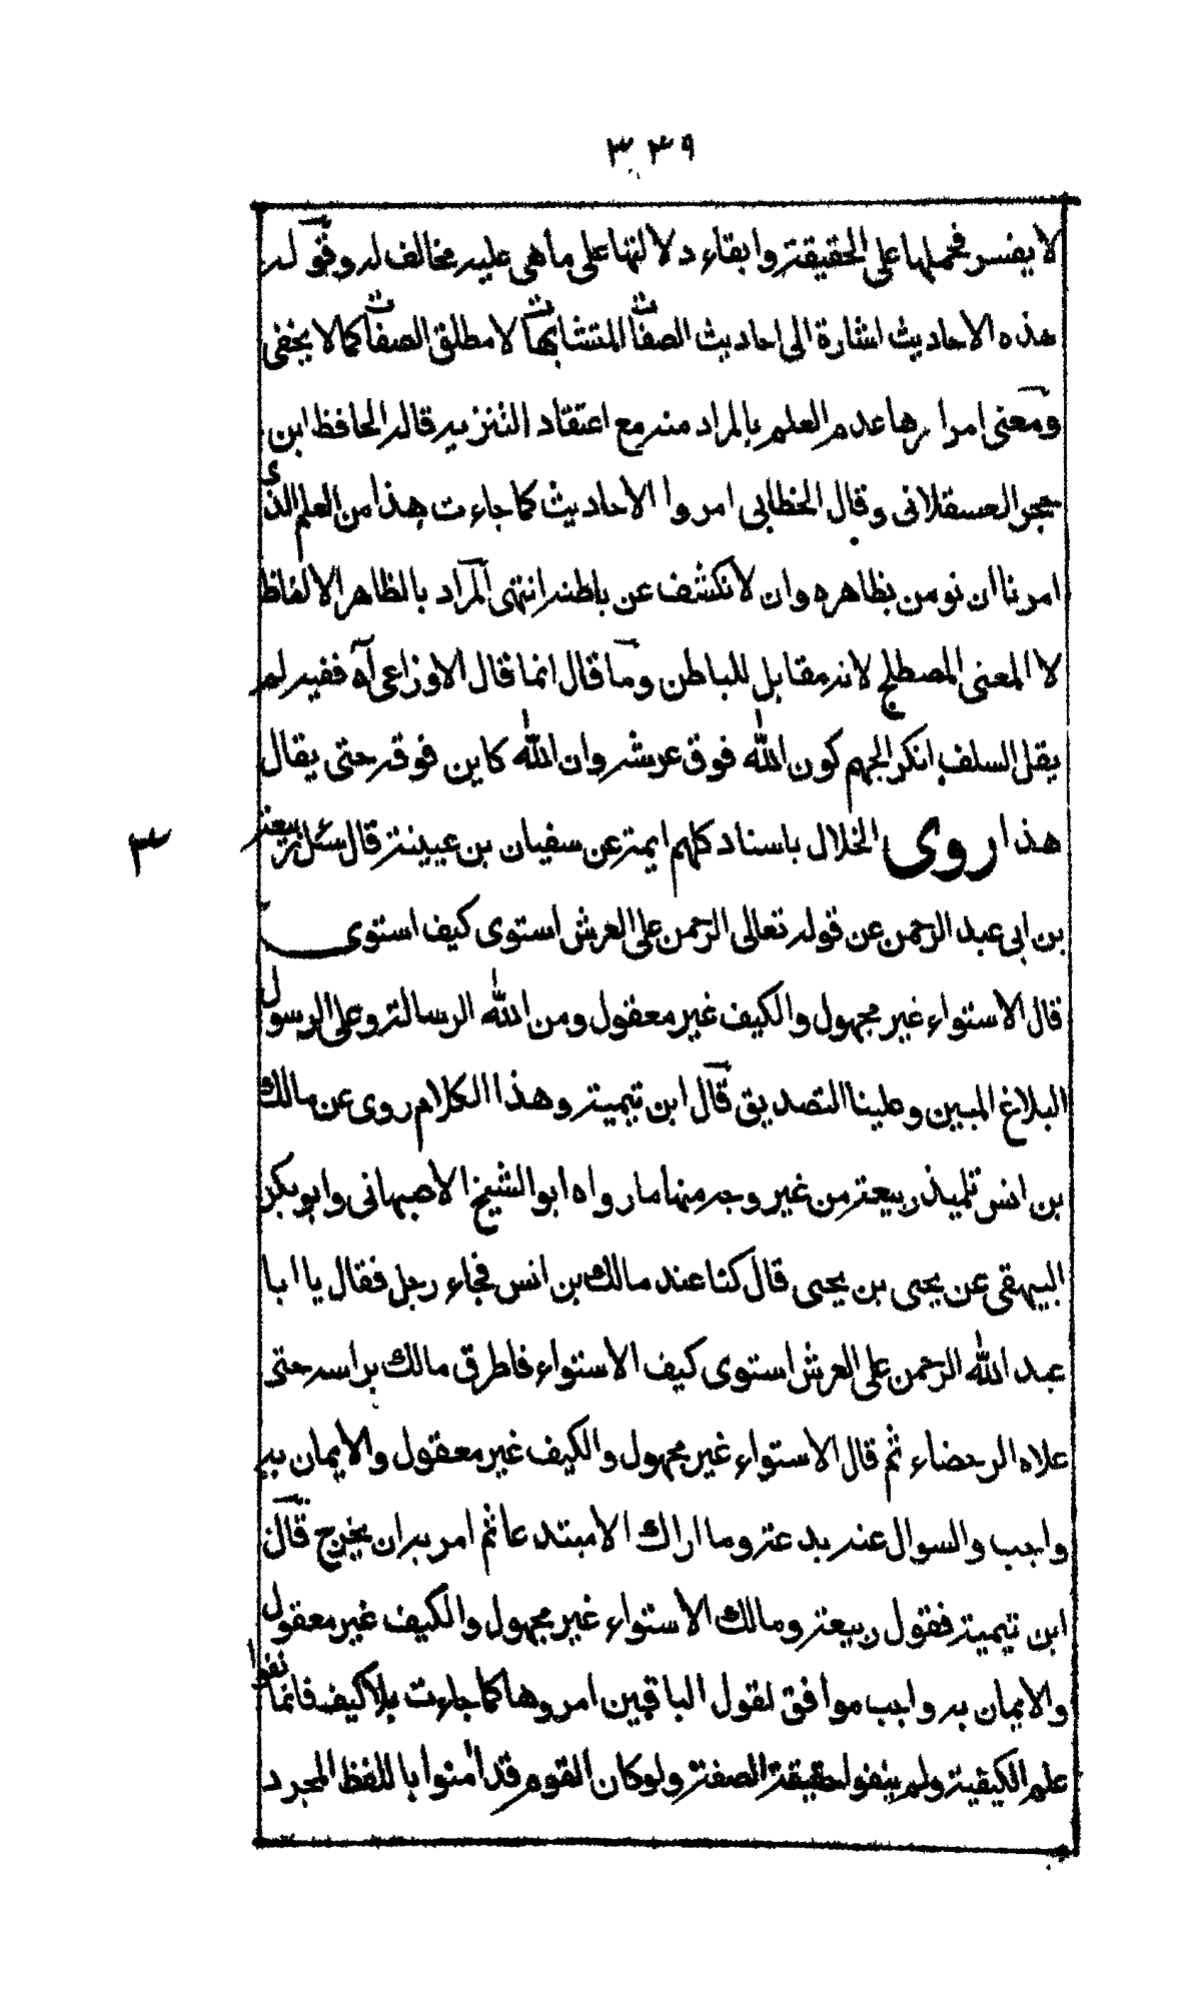 ٣٣٩
لا يفسر فحملها على الحقيقة وابقاء دلالتها على ما هى عليه مخالف له وقوله
هذه الاحاديث اشارة الى احاديث الصفات المتشابهات لا مطلق الصفات كما لا يخفى
ومعنى امرارها عدم العلم بالمراد منه مع اعتقاد التنزيه قاله الحافظ ابن
حجر العسقلانى وقال الخطابى امروا الاحاديث كما جاءت هذا من العلم الذى
امرنا ان نومن بظاهره وان لا نكشف عن باطنه انتهى المراد بالظاهر الالفاظ
لا المعنى المصطلح لانه مقابل للباطن وما قال انما قال الاوزاعى آه ففيه لم
يقل السلف انكر الجهم كون الله فوق عرشه وان الله كاين فوقه حتى يقال
هذا روى الخلال باسناد كلهم ايمة عن سفيان بن عيينة قال سئل ربيعة
٣
بن ابى عبد الرحمن عن قوله تعالى الرحمن على العرش استوى كيف استوى
قال الاستواء غير مجهول والكيف غير معقول ومن الله الرسالة وعلى الرسول
البلاغ المبين وعلينا التصديق قال ابن تيمية وهذا الكلام روى عن مالك
بن انس تلميذ ربيعة من غير وجه منها ما رواه ابو الشيخ الاصبهانى وابو بكر
البيهقى عن يحيى بن يحيى قال كنا عند مالك بن انس فجاء رجل فقال يا ابا
عبد الله الرحمن على العرش استوى كيف الاستواء فاطرق مالك براسه حتى
علاه الرحضاء ثم قال الاستواء غير مجهول والكيف غير معقول والايمان به
واجب والسوال عنه بدعة وما اراك الا مبتدعا ثم امر به ان يخرج قال
ابن تيمية فقول ربيعة ومالك الاستواء غير مجهول والكيف غير معقول
والايمان به واجب موافق لقول الباقين امروها كما جاءت بلا كيف فانما نفوا
علم الكيفية ولم ينفوا حقيقة الصفة ولو كان القوم قد امنوا باللفظ المجرد